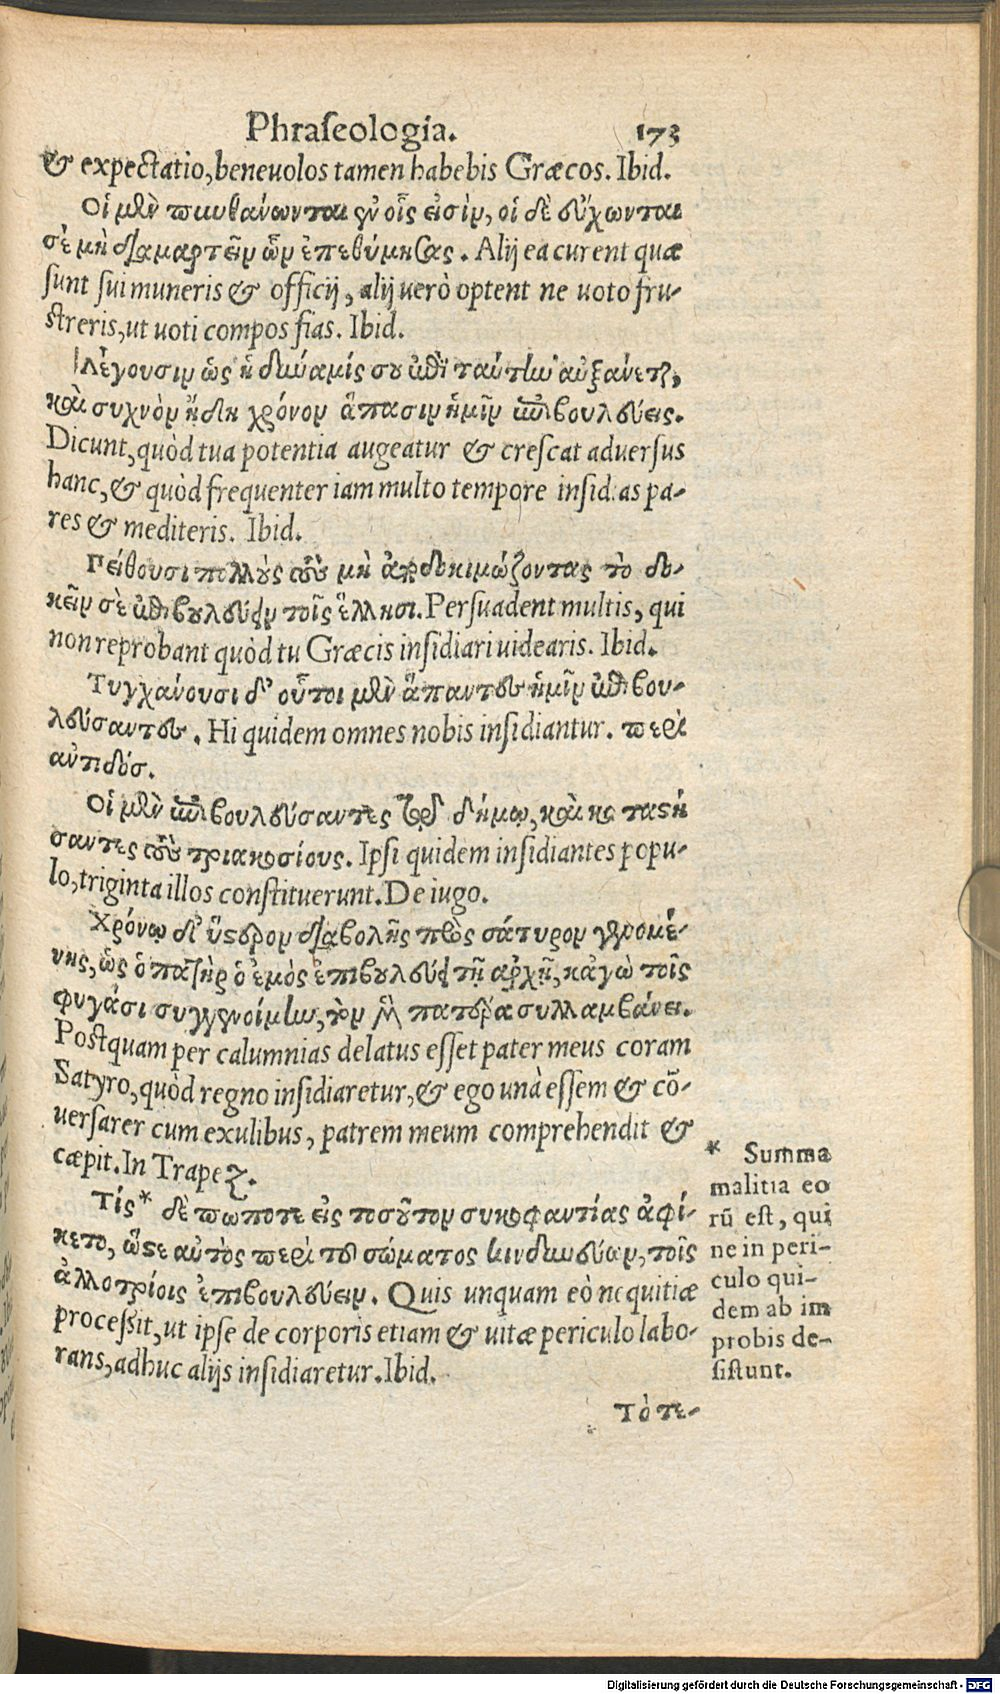 Phraſeologia. 173
& expectatio, beneuolos tamen habebis Græcos. Ibid.
Οἱ μὲν πυνθάνωνται ἐν οἷς εἰσὶν, οἱ δὲ εὔχωνται
σὲ μὴ διαμαρτεῖν ὧν ἐπεθύμησας. Alij ea curent quæ
ſunt ſui muneris & officij, alij uerò optent ne uoto fru-
ſtreris, ut uoti compos fias. Ibid.
Λέγουσιν ὡς ἡ δύναμίς σου ἐπὶ ταύτην αὐξάνεται,
καὶ συχνὸν ἤδη χρόνον ἅπασιν ἡμῖν ἐπιβουλεύεις.
Dicunt, quòd tua potentia augeatur & creſcat aduerſus
hanc, & quòd frequenter iam multo tempore inſidias pa-
res & mediteris. Ibid.
Πείθουσι πολλοὺς τοὺς μὴ ἀποδοκιμάζοντας τὸ δο-
κεῖν σὲ ἐπιβουλεύειν τοῖς ἕλλησι. Perſuadent multis, qui
non reprobant quòd tu Græcis inſidiari uidearis. Ibid.
Τυγχάνουσι δ' οὗτοι μὲν ἅπαντες ἡμῖν ἐπιβου-
λεύσαντες. Hi quidem omnes nobis inſidiantur. περὶ
ἀντιδόσ.
Οἱ μὲν ἐπιβουλεύσαντες τῷ δήμῳ, καὶ κα ταστή
σαντες τοὺς τριακοσίους. Ipſi quidem inſidiantes popu-
lo, triginta illos conſtituerunt. De iugo.
Χρόνῳ δ' ὕστερον διαβολῆς πρὸς σάτυρον γενομέ-
νης, ὡς ὁ πατὴρ ὁ ἐμὸς ἐπιβουλεύει τῇ ἀρχῇ, κἀγὼ τοῖς
φυγάσι συγγενοίμην, τὸν μὲν πατέρα συλλαμβάνει.
Poſtquam per calumnias delatus eſſet pater meus coram
Satyro, quòd regno inſidiaretur, & ego unà eſſem & cō-
uerſarer cum exulibus, patrem meum comprehendit &
cæpit. In Trapez.
Τίς* δὲ πώποτε εἰς τοσοῦτον συκοφαντίας ἀφί-
κετο, ὥστε αὐτὸς περὶ τοῦ σώματος κινδυνεύων, τοῖς
ἀλλοτρίοις ἐπιβουλεύειν. Quis unquam eò nequitiæ
proceſsit, ut ipſe de corporis etiam & uitæ periculo labo-
rans, adhuc alijs inſidiaretur. Ibid.
* Summa
malitia eo
rū eſt, qui
ne in peri-
culo qui-
dem ab im
probis de-
ſiſtunt.
Τὸ τε-
Digitalisierung gefördert durch die Deutsche Forschungsgemeinschaft - DFG